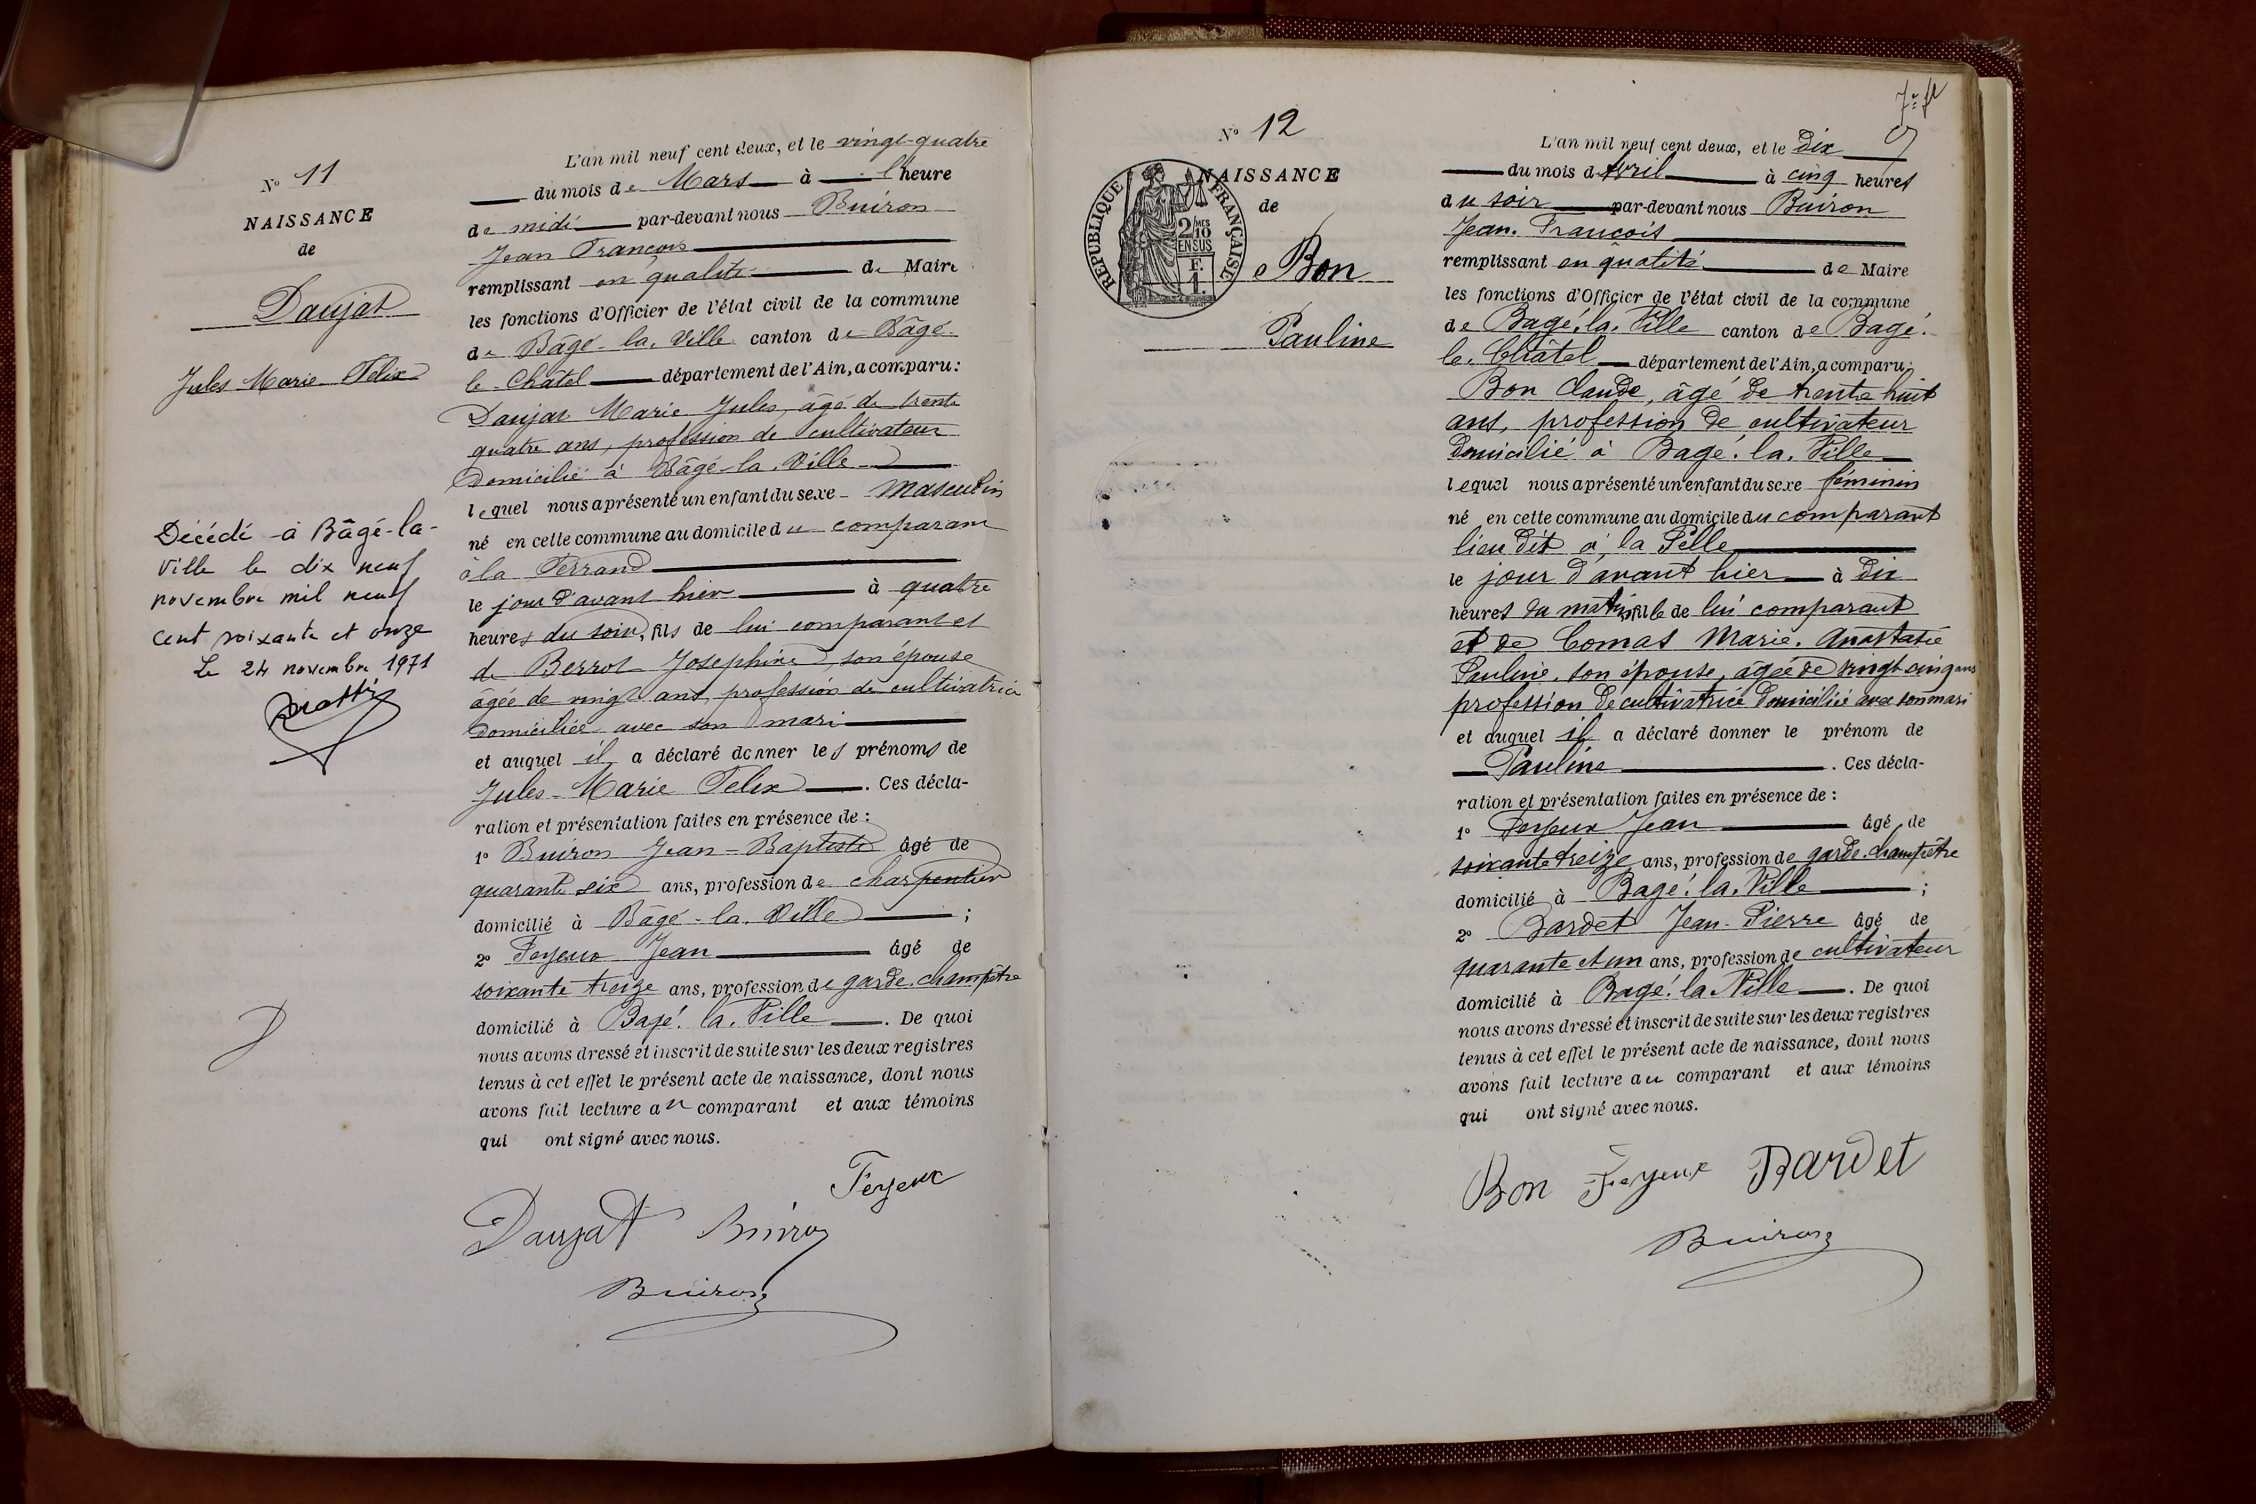 N° 11
NAISSANCE
de
Daujat
Jules Marie Felix
Décédé à Bâgé-la-
Ville le dix neuf
novembre mil neuf
cent soixante et onze
Le 24 novembre 1971
L'an mil neuf cent deux, et le vingt-quatre
du mois de Mars à l'heure
de midi par-devant nous Buiron
Jean François
remplissant en qualité de Maire
les fonctions d'Officier de l'état civil de la commune
de Bâgé-la-Ville canton de Bâgé-
le-Châtel département de l'Ain, a comparu:
Daujat Marie Jules, âgé de trente
quatre ans, profession de cultivateur
domicilié à Bâgé-la-Ville
lequel nous a présenté un enfant du sexe masculin
né en cette commune au domicile du comparant
à la Ferrand
le jour d'avant hier à quatre
heures du soir, fils de lui comparant et
de Berrot Josephine, son épouse
âgée de vingt ans, profession de cultivatrice
domiciliée avec son mari
et auquel il a déclaré donner les prénoms de
Jules Marie Felix. Ces décla-
ration et présentation faites en présence de :
1° Buiron Jean-Baptiste âgé de
quarante six ans, profession de charpentier
domicilié à Bâgé-la-Ville ;
2° Feyeux Jean âgé de
soixante treize ans, profession de garde champêtre
domicilié à Bagé-la-Ville. De quoi
nous avons dressé et inscrit de suite sur les deux registres
tenus à cet effet le présent acte de naissance, dont nous
avons fait lecture au comparant et aux témoins
qui ont signé avec nous.
Feyeux
Daujat Buiron
Buiron
N° 12
NAISSANCE
de
Bon
Pauline
RÉPUBLIQUE FRANÇAISE
2/10 EN SUS
F.
1.
9
L'an mil neuf cent deux, et le dix
du mois d'Avril à cinq heures
du soir par-devant nous Buiron
Jean-François
remplissant en qualité de Maire
les fonctions d'Officier de l'état civil de la commune
de Bagé-la-Ville canton de Bagé-
le-Châtel département de l'Ain, a comparu:
Bon Claude, âgé de trente huit
ans, profession de cultivateur
domicilié à Bagé-la-Ville
lequel nous a présenté un enfant du sexe féminin
né en cette commune au domicile du comparant
lieu dit à la Pelle
le jour d'avant hier à dix
heures du matin, fille de lui comparant
et de Comas Marie-Anastasie
Pauline, son épouse, âgée de vingt-cinq ans
profession de cultivatrice domiciliée avec son mari
et auquel il a déclaré donner le prénom de
Pauline. Ces décla-
ration et présentation faites en présence de :
1° Feyeux Jean âgé de
soixante treize ans, profession de garde-champêtre
domicilié à Bagé-la-Ville ;
2° Bardet Jean-Pierre âgé de
quarante et un ans, profession de cultivateur
domicilié à Bagé-la-Ville. De quoi
nous avons dressé et inscrit de suite sur les deux registres
tenus à cet effet le présent acte de naissance, dont nous
avons fait lecture au comparant et aux témoins
qui ont signé avec nous.
Bon Feyeux Bardet
Buiron